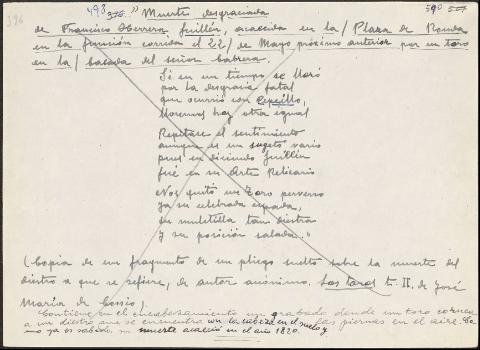 396 498 376 "Muerte desgraciada 590 507
de Francisco Herrera Guillén, acaecida en la/ Plaza de Ronda
en la función corrida el 22/ de Mayo próximo anterior por un toro
en la/ bacada del señor Cabrera.
Si en un tiempo se lloró
por la desgracia fatal
que ocurrió con Pepeillo,
lloremos hoy otra igual
Repitase el sentimiento
aunque es un sugeto vario
pues en diciendo Guillén
fué en su Arte Relicario
Nos quitó un Toro perverso
ya su celebrada espada,
su muletilla tan diestra
y su posición salada."
(Copia de un fragmento de un pliego suelto sobre la muerte del
diestro a que se refiere, de autor anónimo. Los toros t. II. de José
María de Cossio).
Contiene en el encabezamiento un grabado donde un toro cornea
a un diestro que se encuentra con la cabeza en el suelo y las piernas en el aire. Co-
mo ya es sabido, su muerte acaeció en el año 1820.